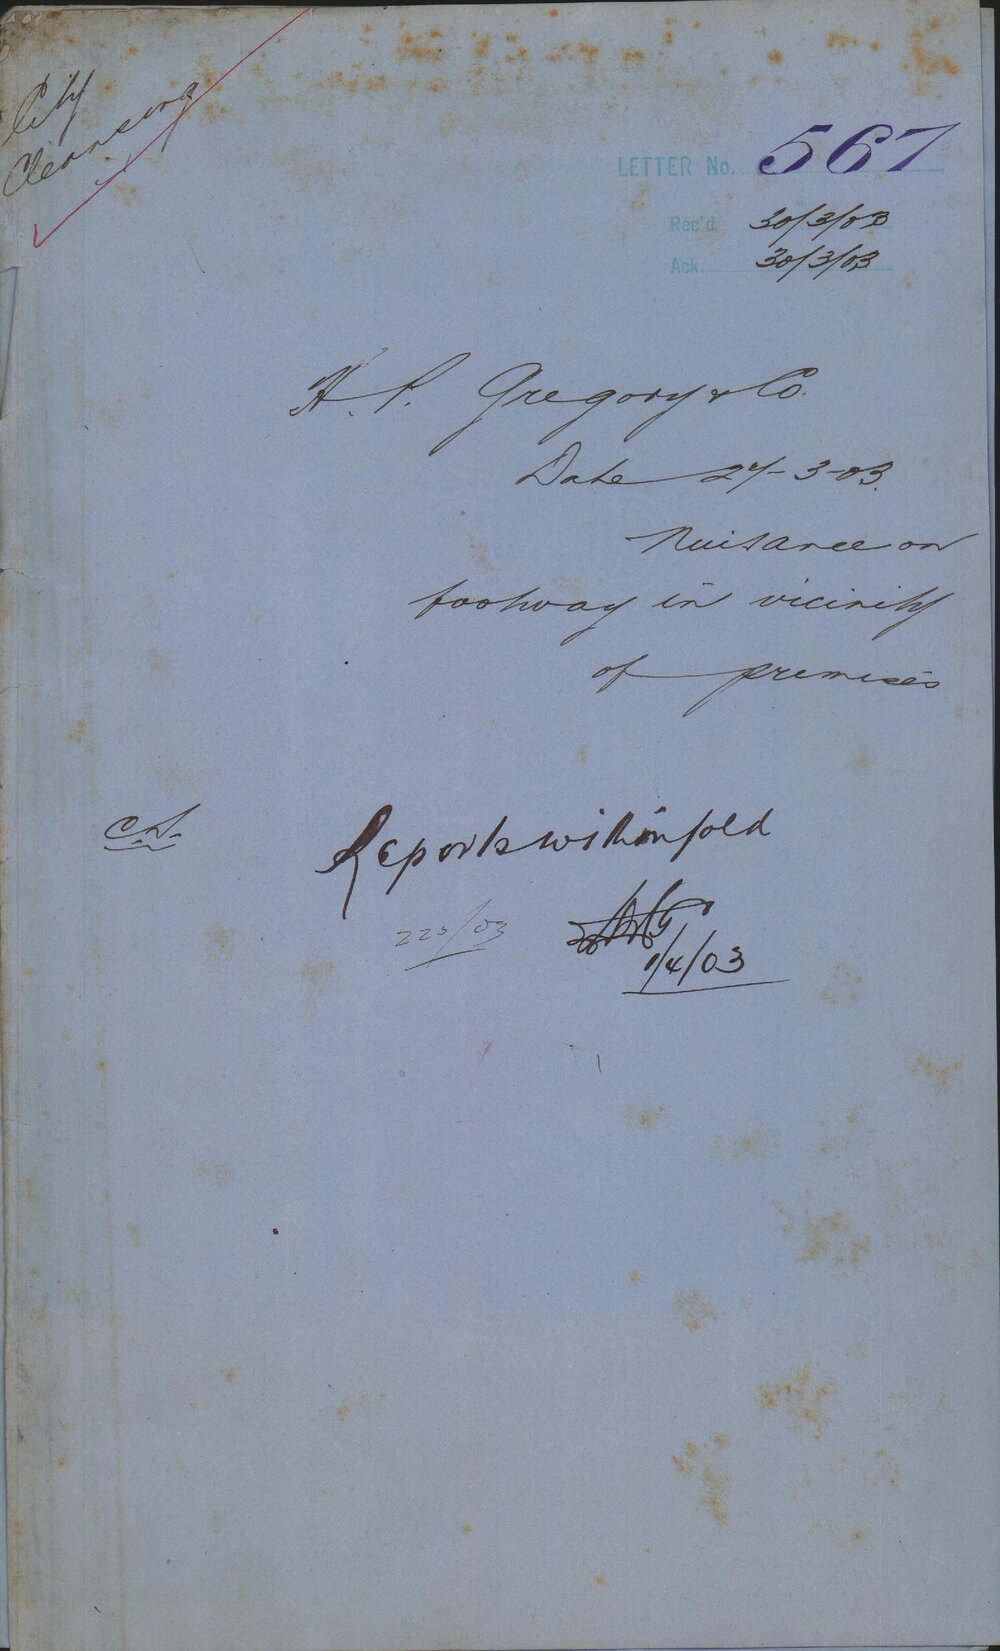 City
Cleansing
LETTER No. 567
Rec'd 30/3/03
Ack. 30/3/03
H. P. Gregory & Co.
Date 27-3-03.
Nuisance on
footway in vicinity
of premises
Reports within fold
225/03
1/4/03